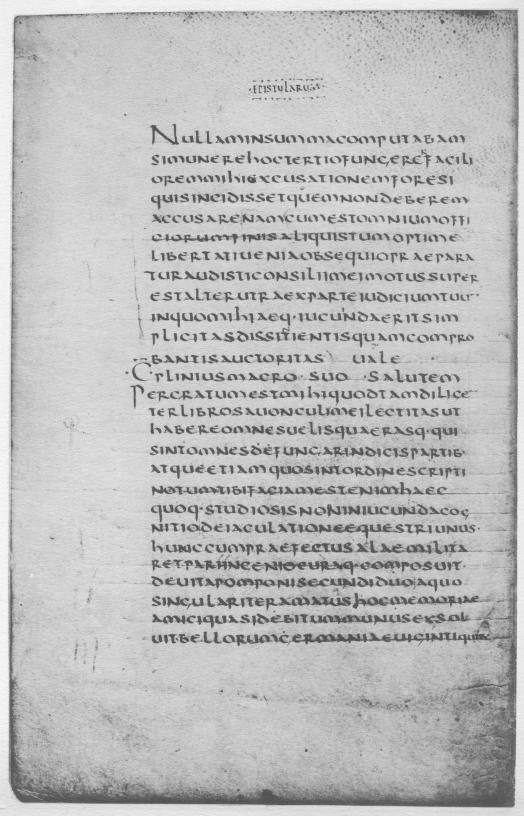 ·EPISTULARUM·
NULLAMINSUMMACOMPUTABAM
SIMUNEREHOCTERTIOFUNGERERFACILI
OREMMIHIEXCUSATIONEMFORESI
QUISINCIDISSETQUEMNONDEBEREM
ACCUSARENAMCUMESTOMNIUMOFFI
CIORUMFINISALIQUISTUMOPTIME
LIBERTATIUENIAOBSEQUIOPRAEPARA
TURAUDISTICONSILIIMEIMOTUSSUPER
ESTALTERUTRAEXPARTEIUDICIUMTUU
INQUOMIHIAEQ·IUCUNDAERITSIM
PLICITASDISSITIENTISQUAMCOMPRO
BANTISAUCTORITAS UALE
·C·PLINIUSMACRO·SUO·SALUTEM
PERGRATUMESTMIHIQUODTAMDILIGE
TERLIBROSAUONCULIMEILECTITASUT
HABEREOMNESUELISQUAERASQ·QUI
SINTOMNESDEFUNGARINDICISPARTIB·
ATQUEETIAMQUOSINTORDINESCRIPTI
NOTUMTIBIFACIAMESTENIMHAEC
QUOQ·STUDIOSISNONINIUCUNDACOG
NITIODEIACULATIONEEQUESTRIUNUS·
HUNCCUMPRAEFECTUSALAEMILITA
RETPARIINGENIOCURAQ·COMPOSUIT·
DEUITAPOMPONISECUNDIDUOAQUO
SINGULARITERAMATUSHOCMEMORIAE
AMICIQUASIDEBITUMMUNUSEXSOL
UIT·BELLORUMGERMANIAEUIGINTIQUINC